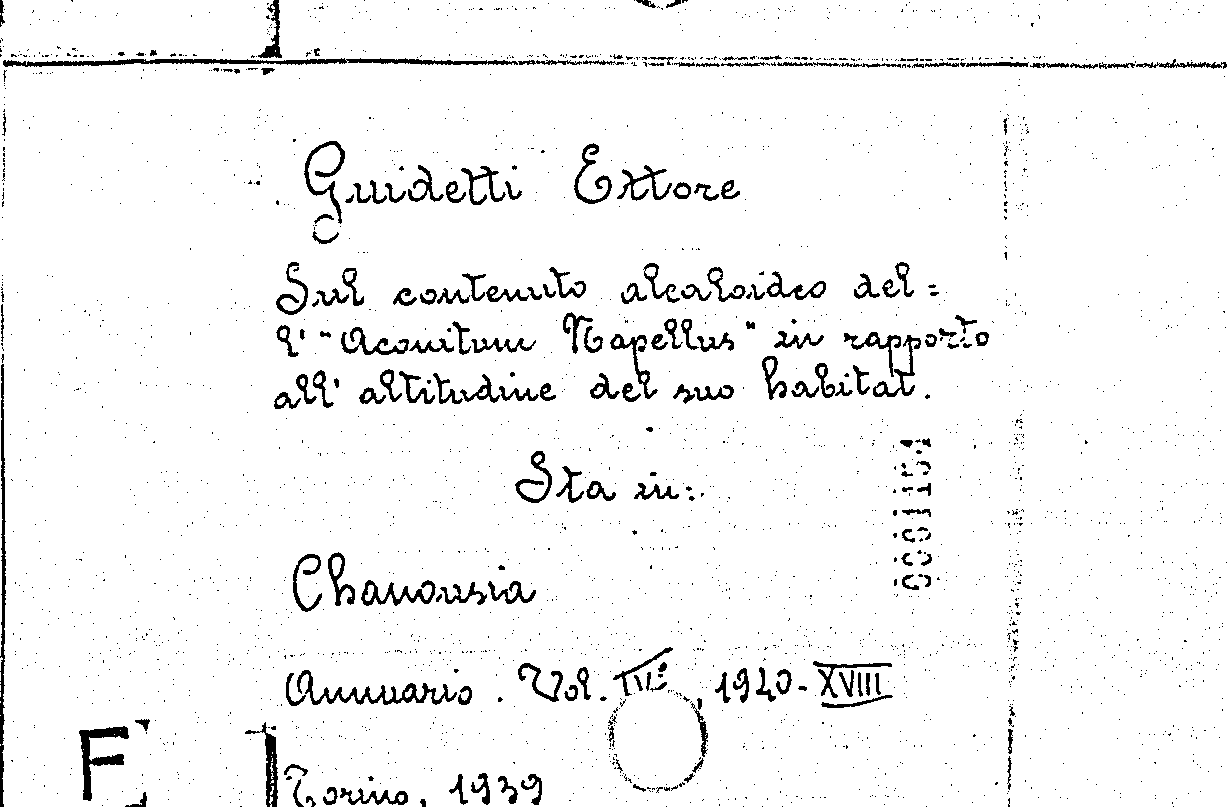 Guidetti Ettore
Sul contenuto alcaloideo del=
l' "Aconitum Napellus" in rapporto
all' altitudine del suo habitat.
Sta in:
Chanousia
Annuario. Vol. IV:, 1940-XVIII
Torino, 1939
F
0001154